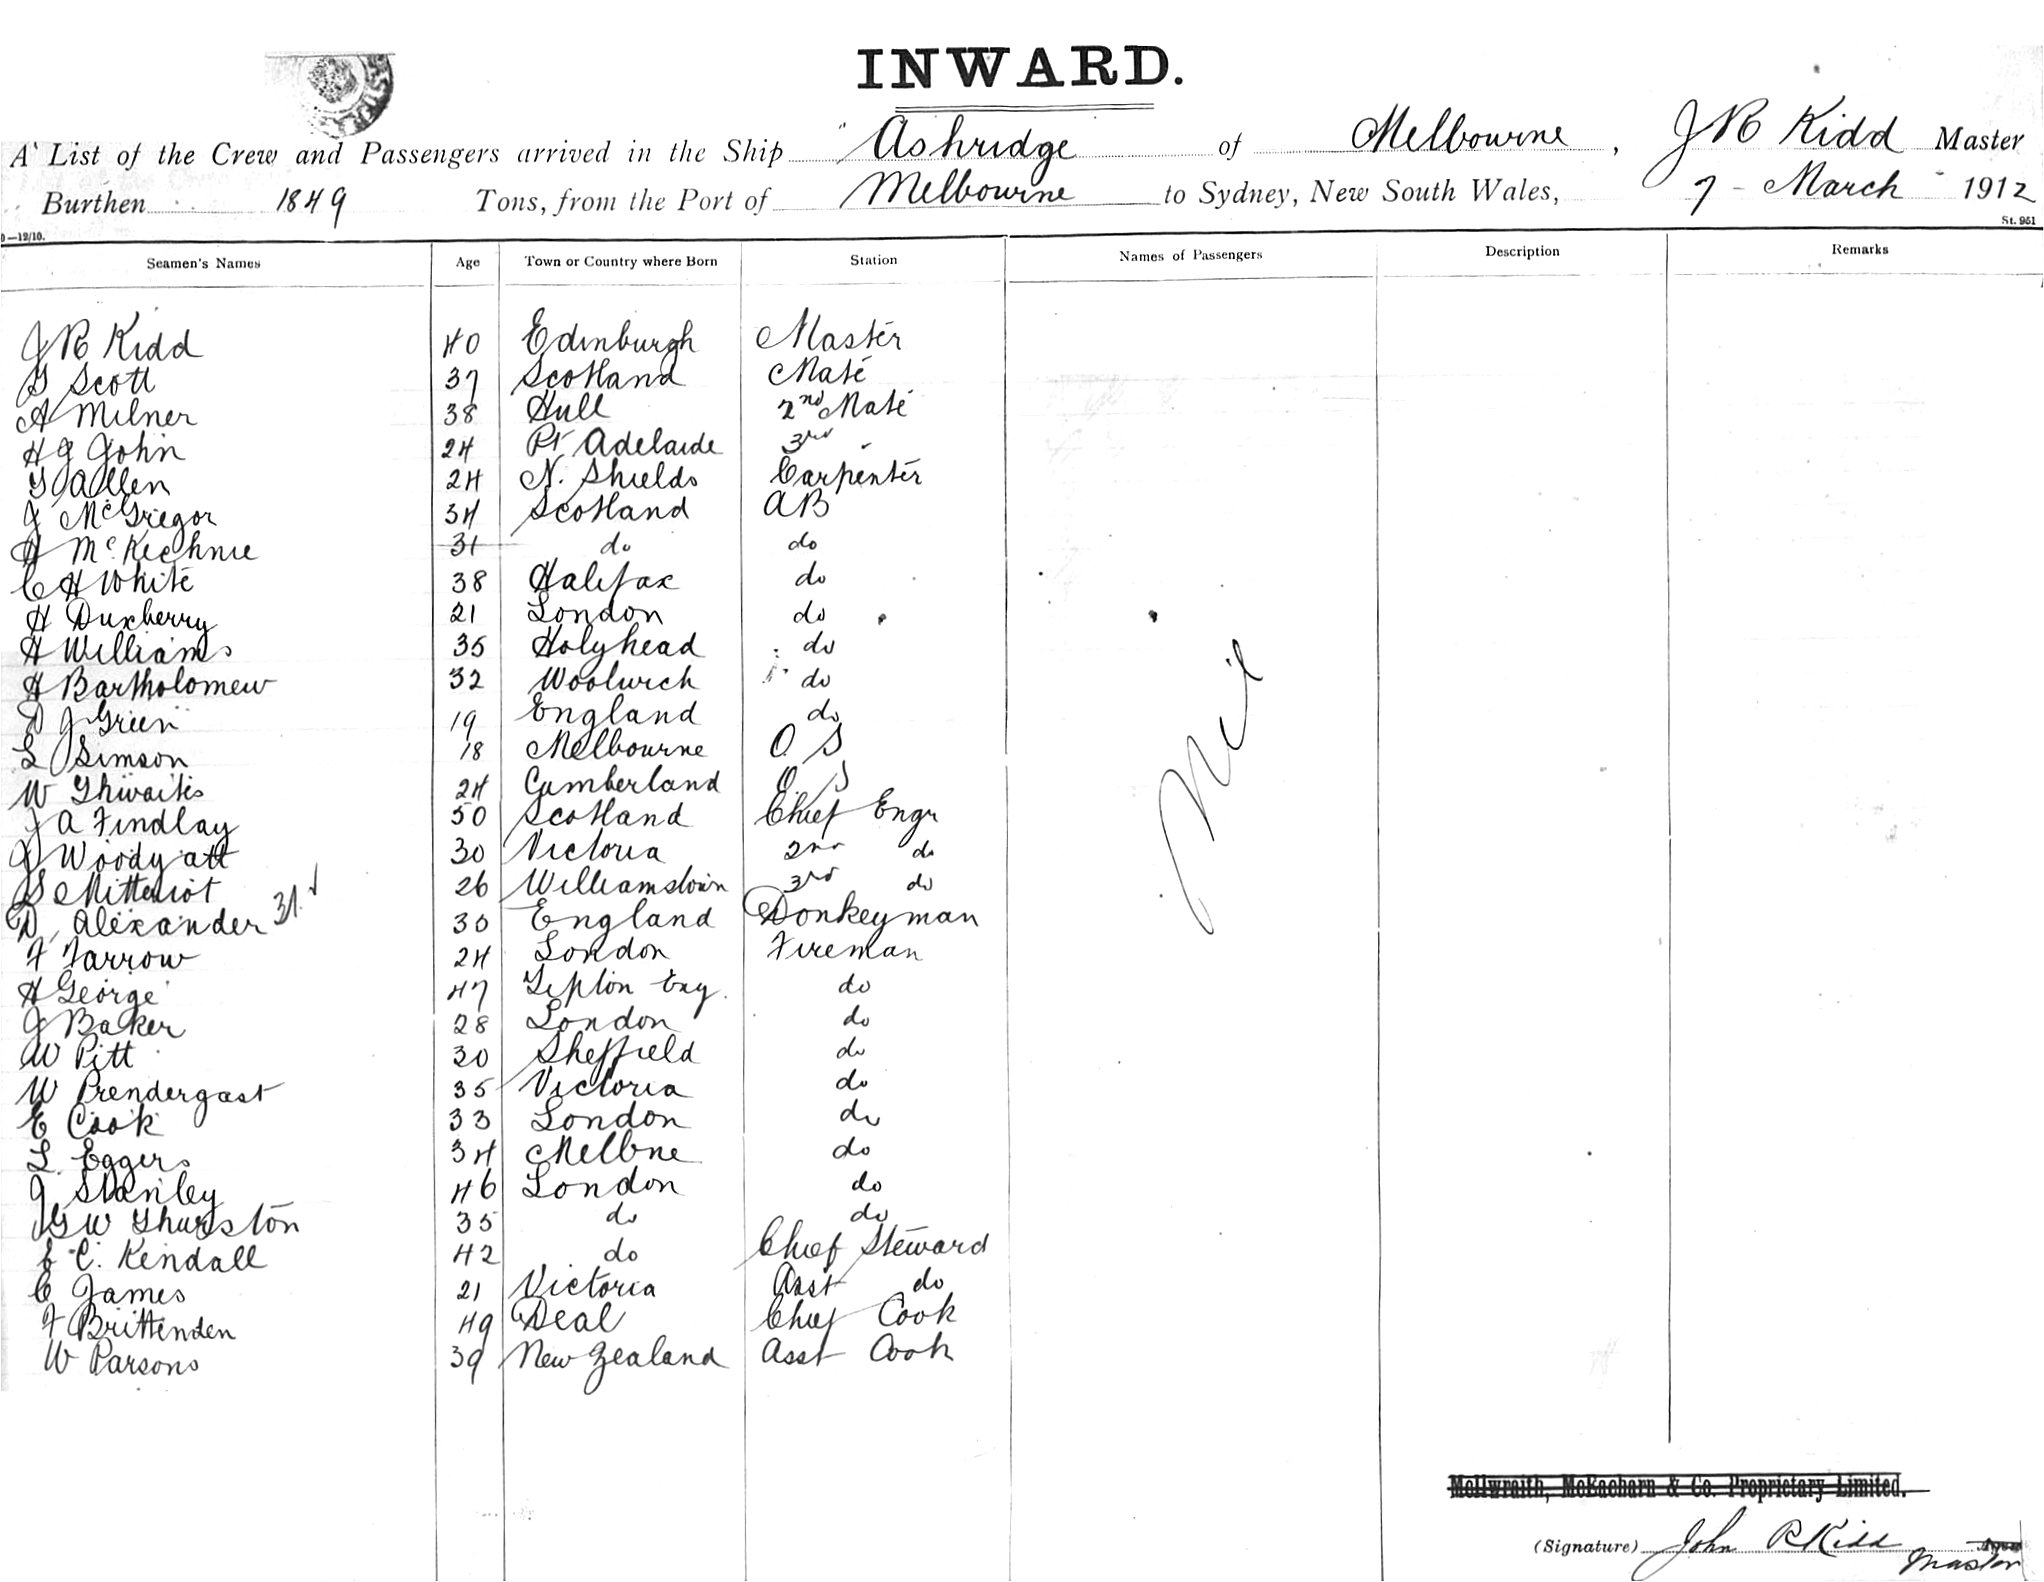 INWARD.
A List of the Crew and Passengers arrived in the Ship "Ashridge of Melbourne, J R Kidd Master
Burthen 1849 Tons, from the Port of Melbourne to Sydney, New South Wales, 7 - March 1912
—12/10. St. 951
Seamen's Names Age Town or Country where Born Station Names of Passengers Description Remarks
J R Kidd 40 Edinburgh Master
G Scott 37 Scotland Mate
A Milner 38 Hull 2nd Mate
H J John 24 Pt Adelaide 3rd "
T Allen 24 N. Shields Carpenter
J McGregor 34 Scotland AB
A McKechnie 31 do do
C H White 38 Halifax do
H Duxberry 21 London do
H Williams 35 Holyhead do
H Bartholomew 32 Woolwich do
D J Green 19 England do
L Simson 18 Melbourne O S
W Thwaites 24 Cumberland O S
J A Findlay 50 Scotland Chief Engr
J Woodyatt 30 Victoria 2nd do
S 26 Williamstown 3rd do
D. Alexander 31. 30 England Donkeyman
F Farrow 24 London Fireman
H George 47 Tipton Eng. do
J Baker 28 London do
W Pitt 30 Sheffield do
W Prendergast 35 Victoria do
E Cook 33 London do
L. Eggers 34 Melbne do
J Stanley 46 London do
G W Thurston 35 do do
E C. Kendall 42 do Chief Steward
C James 21 Victoria Asst do
F Brittenden 49 Deal Chief Cook
W Parsons 39 New Zealand Asst Cook
Nil
McIlwraith, McEacharn & Co. Proprietary Limited.
(Signature) John R Kidd
Master